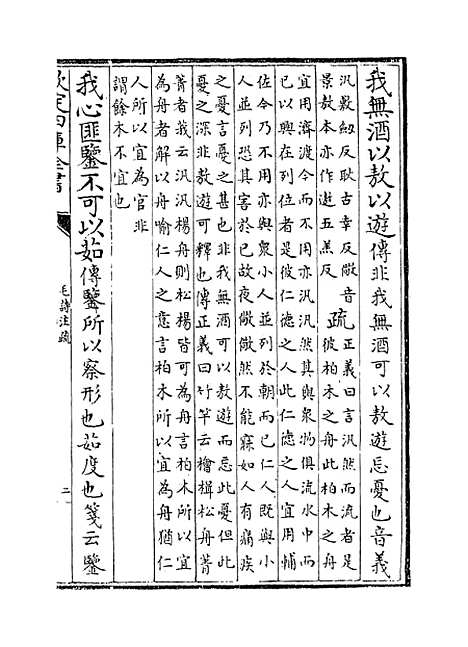 我無酒以敖以遊傳非我無酒可以敖遊忘憂也音義
汎敷劒反耿古幸反儆音
景敖本亦作遨五羔反
疏
正義曰言汎然而流者是
彼柏木之舟此柏木之舟
宜用濟渡今而不用亦汎汎然其與衆物俱流水中而
已以興在列位者是彼仁德之人此仁德之人宜用輔
佐今乃不用亦與衆小人並列於朝而已仁人既與小
人並列恐其害於已故夜儆儆然不能寐如人有痛疾
之憂言憂之甚也非我無酒可以敖遊而忘此憂但此
憂之深非敖遊可釋也傳正義曰竹竿云檜楫松舟菁
菁者莪云汎汎楊舟則松楊皆可為舟言柏木所以宜
為舟者解以舟喻仁人之意言柏木所以宜為舟猶仁
人所以宜為官非
謂餘木不宜也
我心匪鑒不可以茹傳鑒所以察形也茹度也箋云鑒
欽定四庫全書
毛詩注疏
二